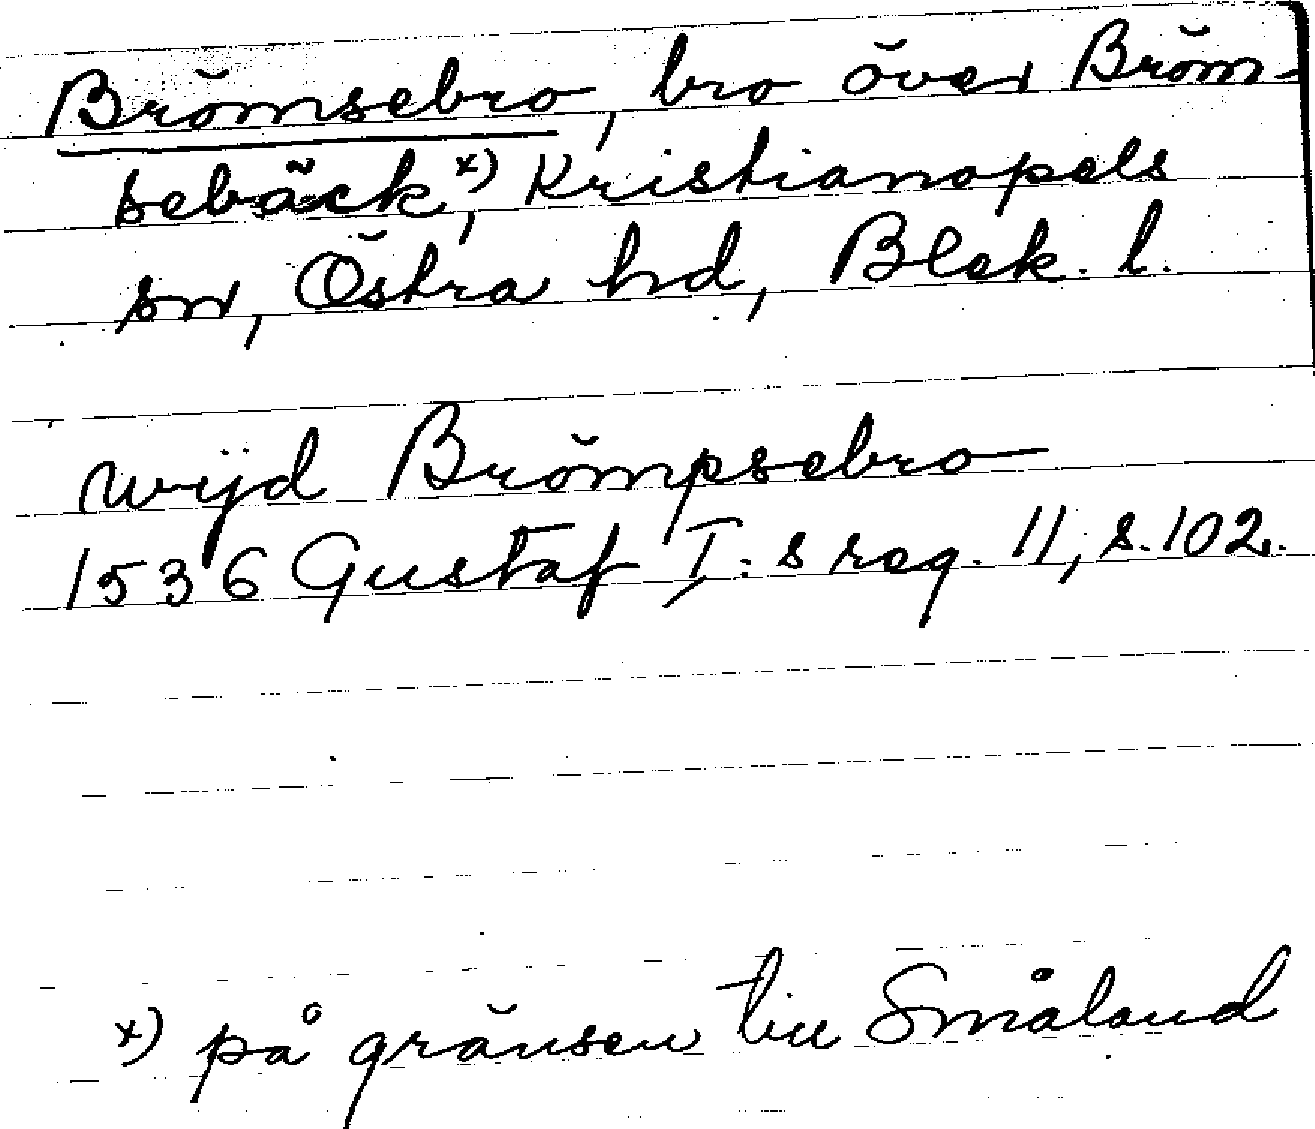 Brömsebro, bro över Bröm-
sebäck x), Kristianopels
sn, Östra hd, Blek. l.
wijd Brömpsebro
1536 Gustaf I:s reg. 11, s. 102.
x) på gränsen till Småland